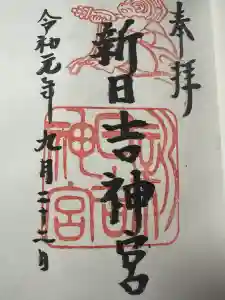 奉拝
新日吉神宮
令和元年九月二十二日
新日吉神宮